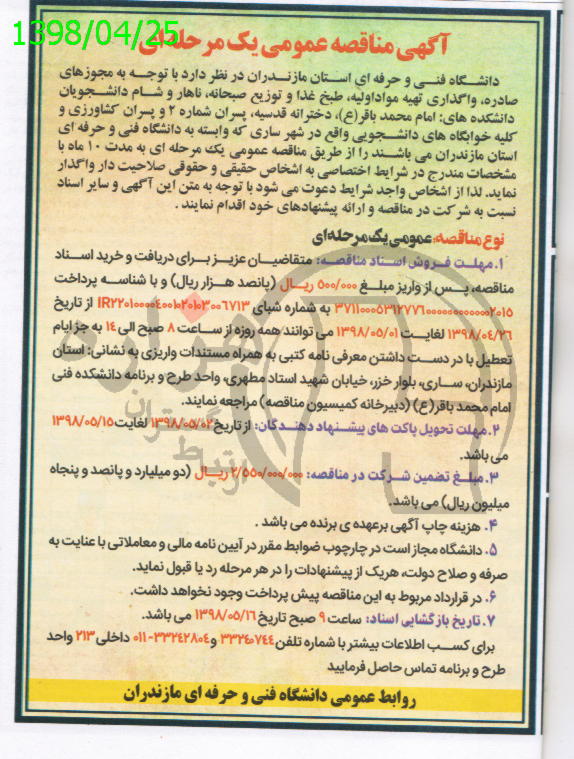 1398/04/25
آگهی مناقصه عمومی یک مرحله‌ای
دانشگاه فنی و حرفه ای استان مازندران در نظر دارد با توجه به مجوزهای
صادره، واگذاری تهیه مواداولیه، طبخ غذا و توزیع صبحانه، ناهار و شام دانشجویان
دانشکده های: امام محمد باقر(ع)، دخترانه قدسیه، پسران شماره ۲ و پسران کشاورزی و
کلیه خوابگاه های دانشجویی واقع در شهر ساری که وابسته به دانشگاه فنی و حرفه ای
استان مازندران می باشند را از طریق مناقصه عمومی یک مرحله ای به مدت ۱۰ ماه با
مشخصات مندرج در شرایط اختصاصی به اشخاص حقیقی و حقوقی صلاحیت دار واگذار
نماید. لذا از اشخاص واجد شرایط دعوت می شود با توجه به متن این آگهی و سایر اسناد
نسبت به شرکت در مناقصه و ارائه پیشنهادهای خود اقدام نمایند .
نوع مناقصه: عمومی یک مرحله‌ای
۱. مهلت فروش اسناد مناقصه: متقاضیان عزیز برای دریافت و خرید اسناد
مناقصه، پس از واریز مبلغ ۵۰۰/۰۰۰ ریال (پانصد هزار ریال) و با شناسه پرداخت
به شماره شبای از تاریخ
۱۳۹۸/۰۴/۲۶ لغایت ۱۳۹۸/۰۵/۰۱ می توانند همه روزه از ساعت ۸ صبح الی ۱۴ به جز ایام
تعطیل با در دست داشتن معرفی نامه کتبی به همراه مستندات واریزی به نشانی: استان
مازندران، ساری، بلوار خزر، خیابان شهید استاد مطهری، واحد طرح و برنامه دانشکده فنی
امام محمد باقر(ع) (دبیرخانه کمیسیون مناقصه) مراجعه نمایند.
۲. مهلت تحویل پاکت های پیشنهاد دهندگان: از تاریخ ۱۳۹۸/۰۵/۰۲ لغایت ۱۳۹۸/۰۵/۱۵
می باشد.
۳. مبلغ تضمین شرکت در مناقصه: ۲/۵۵۰/۰۰۰/۰۰۰ ریال (دو میلیارد و پانصد و پنجاه
میلیون ریال) می باشد.
۴. هزینه چاپ آگهی برعهده ی برنده می باشد .
۵. دانشگاه مجاز است در چارچوب ضوابط مقرر در آیین نامه مالی و معاملاتی با عنایت به
صرفه و صلاح دولت، هریک از پیشنهادات را در هر مرحله رد یا قبول نماید.
۶. در قرارداد مربوط به این مناقصه پیش پرداخت وجود نخواهد داشت.
۷. تاریخ بازگشایی اسناد: ساعت ۹ صبح تاریخ ۱۳۹۸/۰۵/۱۶ می باشد.
برای کسب اطلاعات بیشتر با شماره تلفن ۳۳۲۴۰۷۴۴ و ۳۳۲۴۲۸۰۴-۰۱۱ داخلی ۲۱۳ واحد
طرح و برنامه تماس حاصل فرمایید
روابط عمومی دانشگاه فنی و حرفه ای مازندران